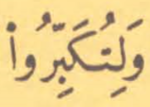 وَلِتُكَبِّرُوا